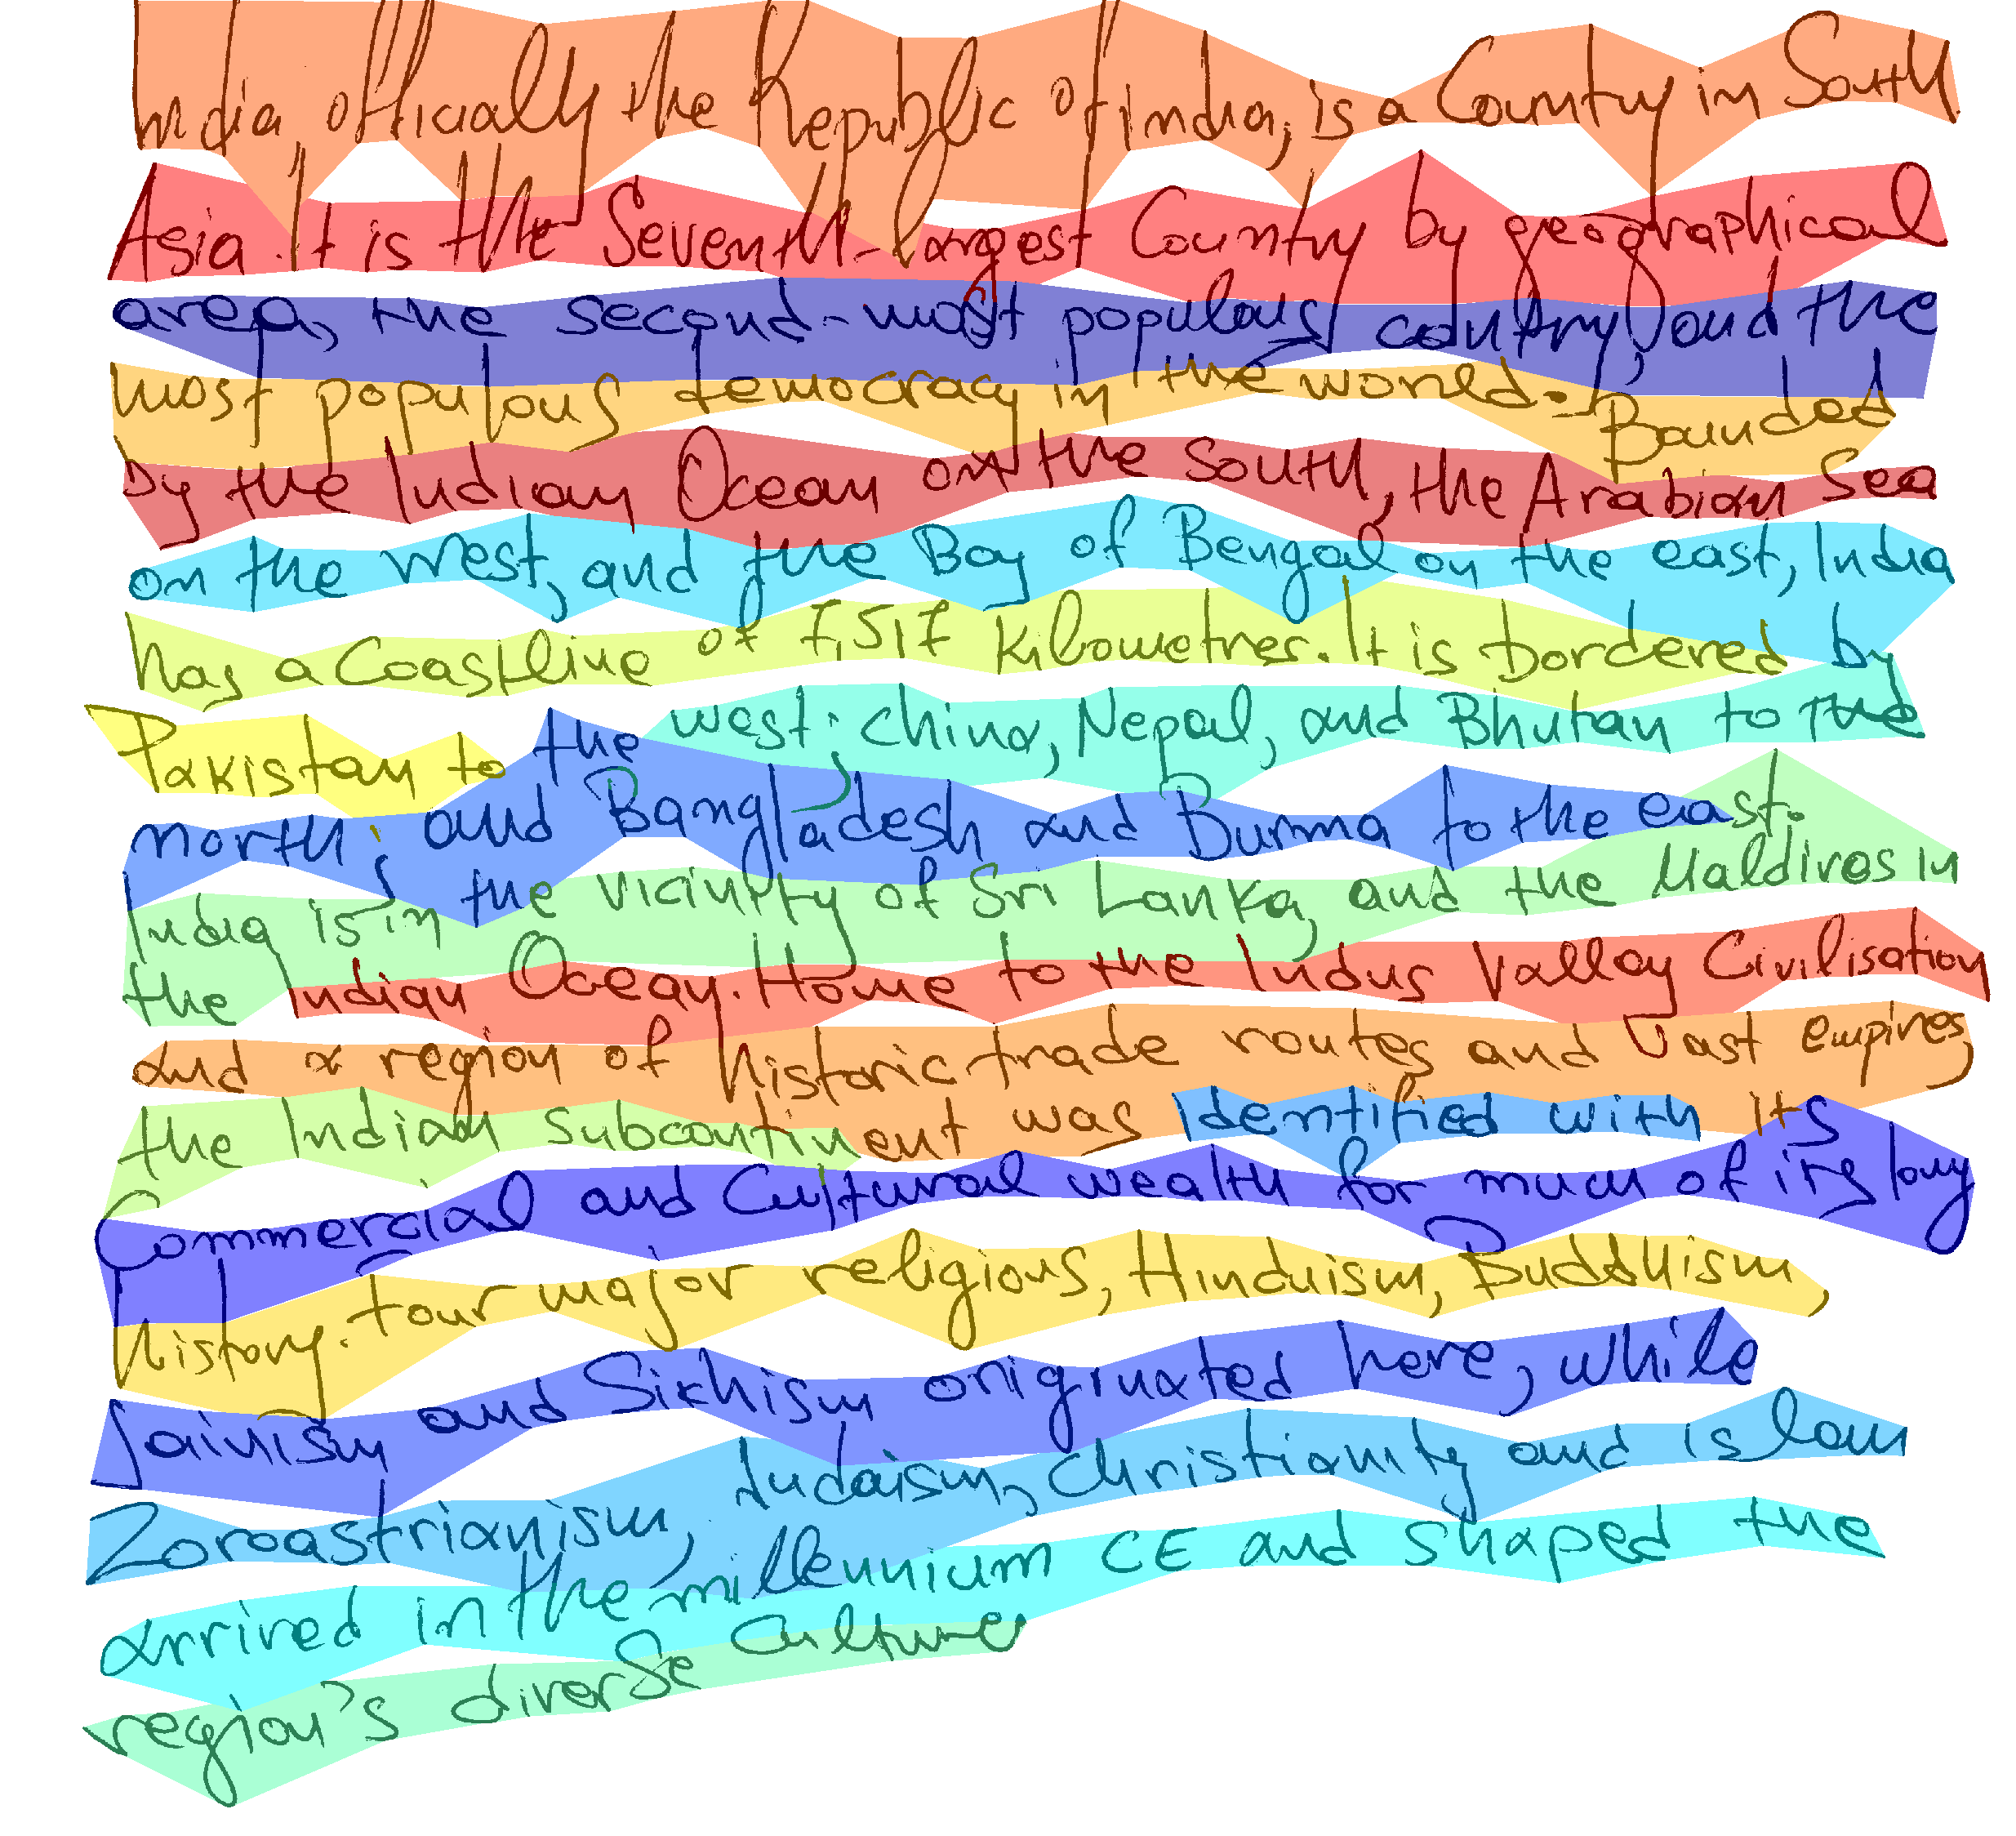 India, officially the Republic of india, is a Country in South
Asia. It is the Seventh-largest Country by geographical
area, the second-most populous country, and the
most populous democracy in the world. Bounded
by the Indian Ocean on the south, the Arabian Sea
on the west, and the Bay of Bengal on the east, India
has a Coastline of 7,517 kilometres. It is bordered by
Pakistan to the west; china, Nepal, and Bhutan to the
north; and Bangladesh and Burma to the east.
India is in the vicinity of Sri Lanka, and the Maldives in
the Indian Ocean. Home to the Indus Valley Civilisation
and a region of historic trade routes and vast empires,
the Indian subcontinent was identified with its
Commercial and Cultural wealth for much of its long
history. Four major religious, Hinduism, Buddhism,
Jainism and Sikhism originated here, while
Zoroastrianism, Judaism, christianity and islam
arrived in the millennium CE and shaped the
region's diverse culture